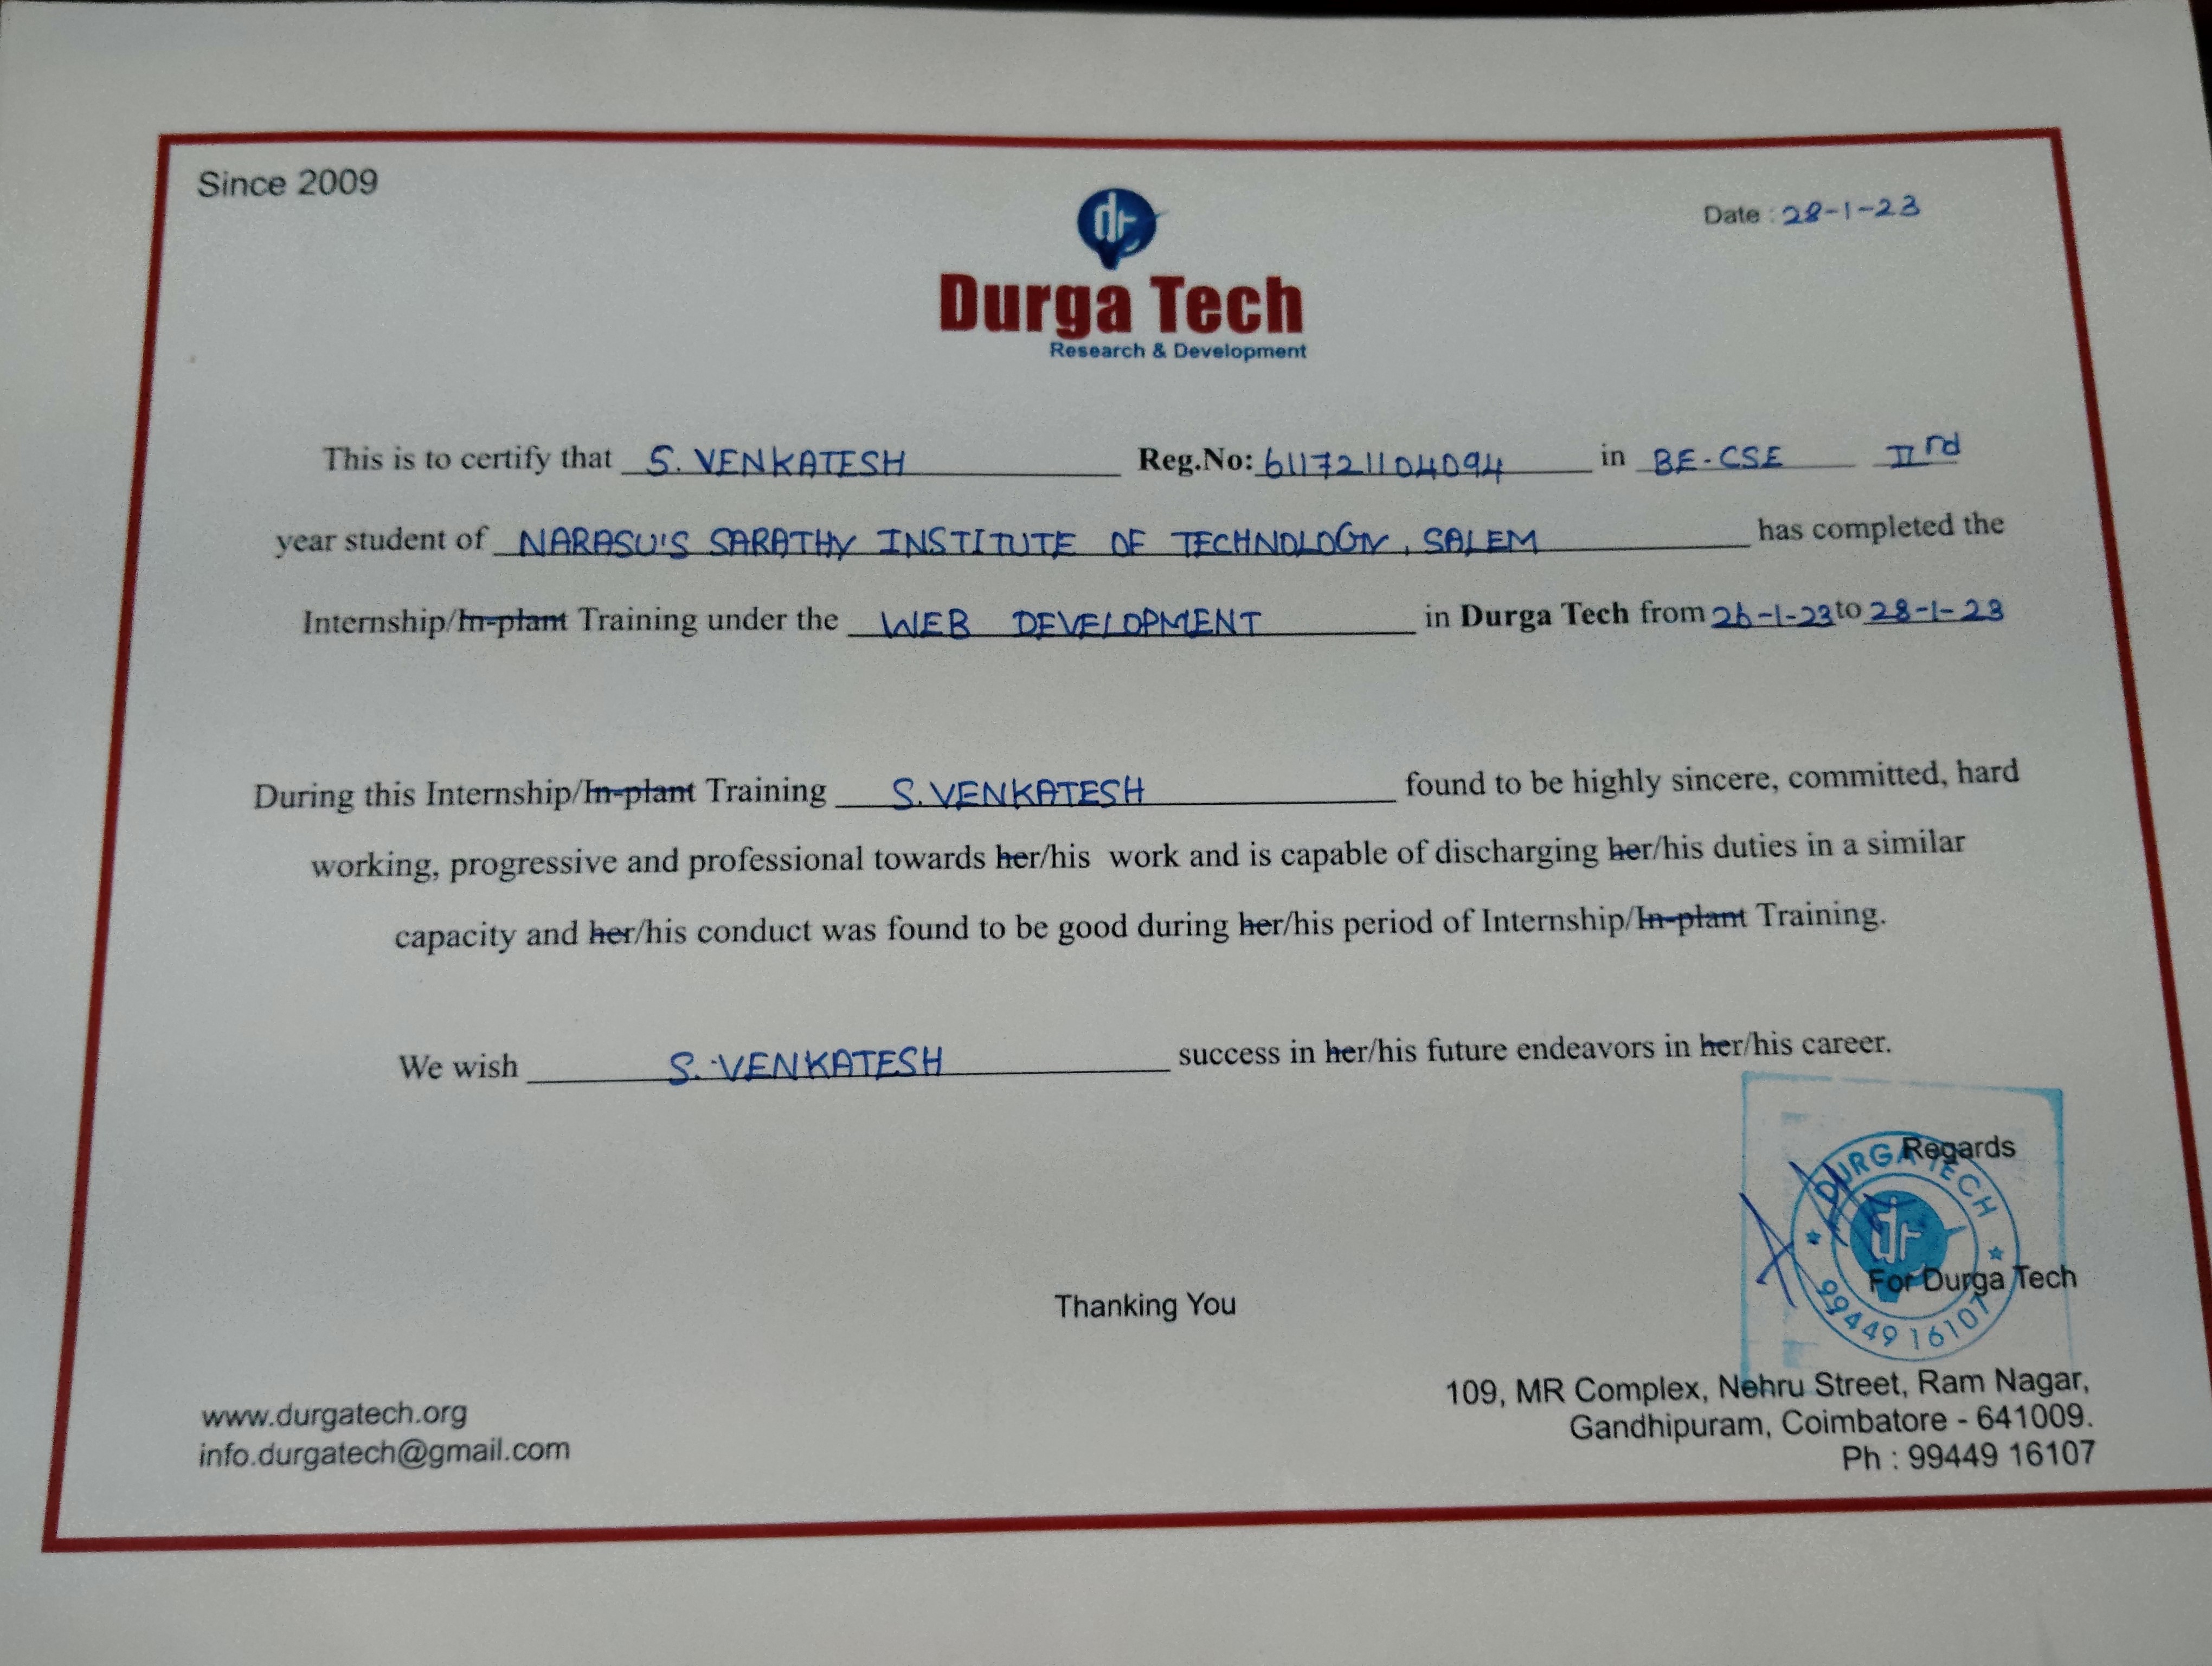 Since 2009
Date : 28-1-23
dt
Durga Tech
Research & Development
This is to certify that S. VENKATESH Reg.No: 611721104094 in BE-CSE IIrd
year student of NARASU'S SARATHY INSTITUTE OF TECHNOLOGY, SALEM has completed the
Internship/In-plant Training under the WEB DEVELOPMENT in Durga Tech from 26-1-23 to 28-1-23
During this Internship/In-plant Training S. VENKATESH found to be highly sincere, committed, hard
working, progressive and professional towards her/his work and is capable of discharging her/his duties in a similar
capacity and her/his conduct was found to be good during her/his period of Internship/In-plant Training.
We wish S. VENKATESH success in her/his future endeavors in her/his career.
Regards
DURGA TECH
dt
99449 16107
For Durga Tech
Thanking You
www.durgatech.org
info.durgatech@gmail.com
109, MR Complex, Nehru Street, Ram Nagar,
Gandhipuram, Coimbatore - 641009.
Ph : 99449 16107